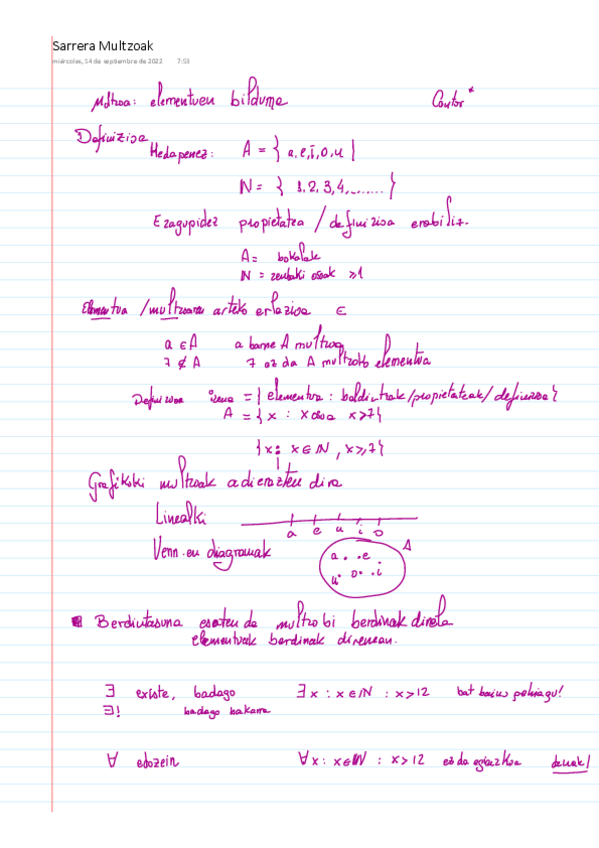 Sarrera Multzoak
miércoles, 14 de septiembre de 2022 7:53
Multzoa: elementuen bilduma Cantor*
Definizioa
Hedapenez: A = { a, e, i, o, u }
N = { 1, 2, 3, 4, ....... }
Ezagupidez propietatea / definizioa erabiliz.
A = bokalak
N = zenbaki osoak ≥1
Elementua / multzoaren arteko erlazioa ∈
a ∈ A a barne A multzoa
7 ∉ A 7 ez da A multzoko elementua
Definizioa izena = { elementua : baldintzak / propietateak / definizioa }
A = { x : x osoa x>7 }
{ x : x ∈ N , x ≥ 7 }
Grafikoki multzoak adierazten dira
Linealki
a e u i o
Venn-en diagramak
A
a . . e
u . o . . i
Berdintasuna esaten da multzo bi berdinak direla
elementuak berdinak direnean.
∃ existe, badago ∃ x : x ∈ N : x > 12 bat baino gehiago!
∃! badago bakarra
∀ edozein ∀ x : x ∈ N : x > 12 ez da egiazkoa denak!